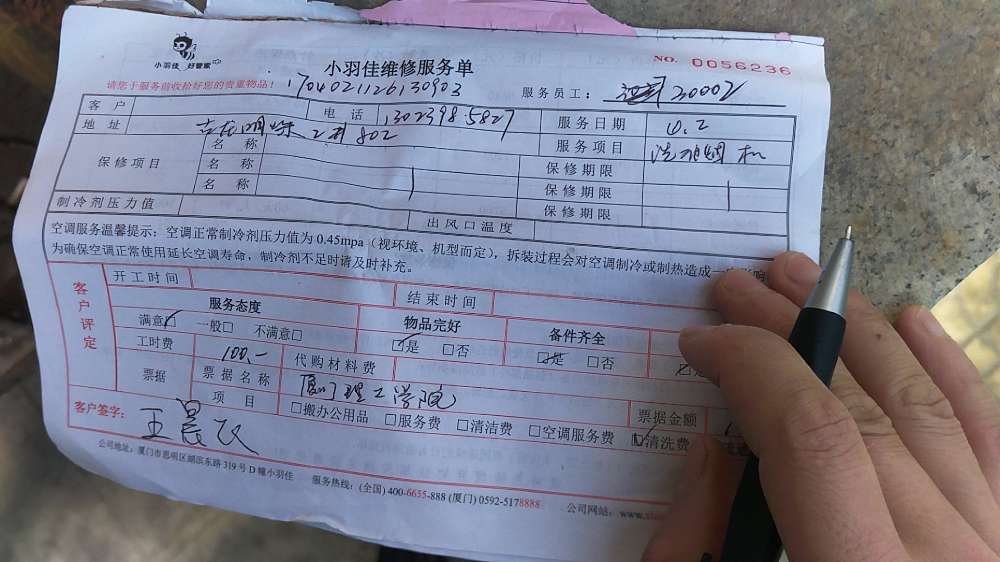 小羽佳 好管家
小羽佳维修服务单
NO. 0056236
请您于服务前收拾好您的贵重物品!
1704021126130903
服务员工: 30002
客户 电话 13023985827 服务日期 6.2
地址 2#802 服务项目 洗油烟机
保修项目 名称 保修期限
名称 保修期限
名称 保修期限
制冷剂压力值 出风口温度
空调服务温馨提示: 空调正常制冷剂压力值为 0.45mpa (视环境、机型而定), 拆装过程会对空调制冷或制热造成一
为确保空调正常使用延长空调寿命, 制冷剂不足时请及时补充。
客户评定
开工时间 结束时间
服务态度 物品完好 备件齐全
满意☑ 一般□ 不满意□ ☑是 □否 ☑是 □否
工时费 100.- 代购材料费
票据 票据名称 厦门理工学院
项目 □搬办公用品 □服务费 □清洁费 □空调服务费 ☑清洗费 票据金额
客户签字: 王晨
公司地址: 厦门市思明区湖滨东路 319 号 D 幢小羽佳 服务热线: (全国) 400-6655-888 (厦门) 0592-5178888 公司网站: www.